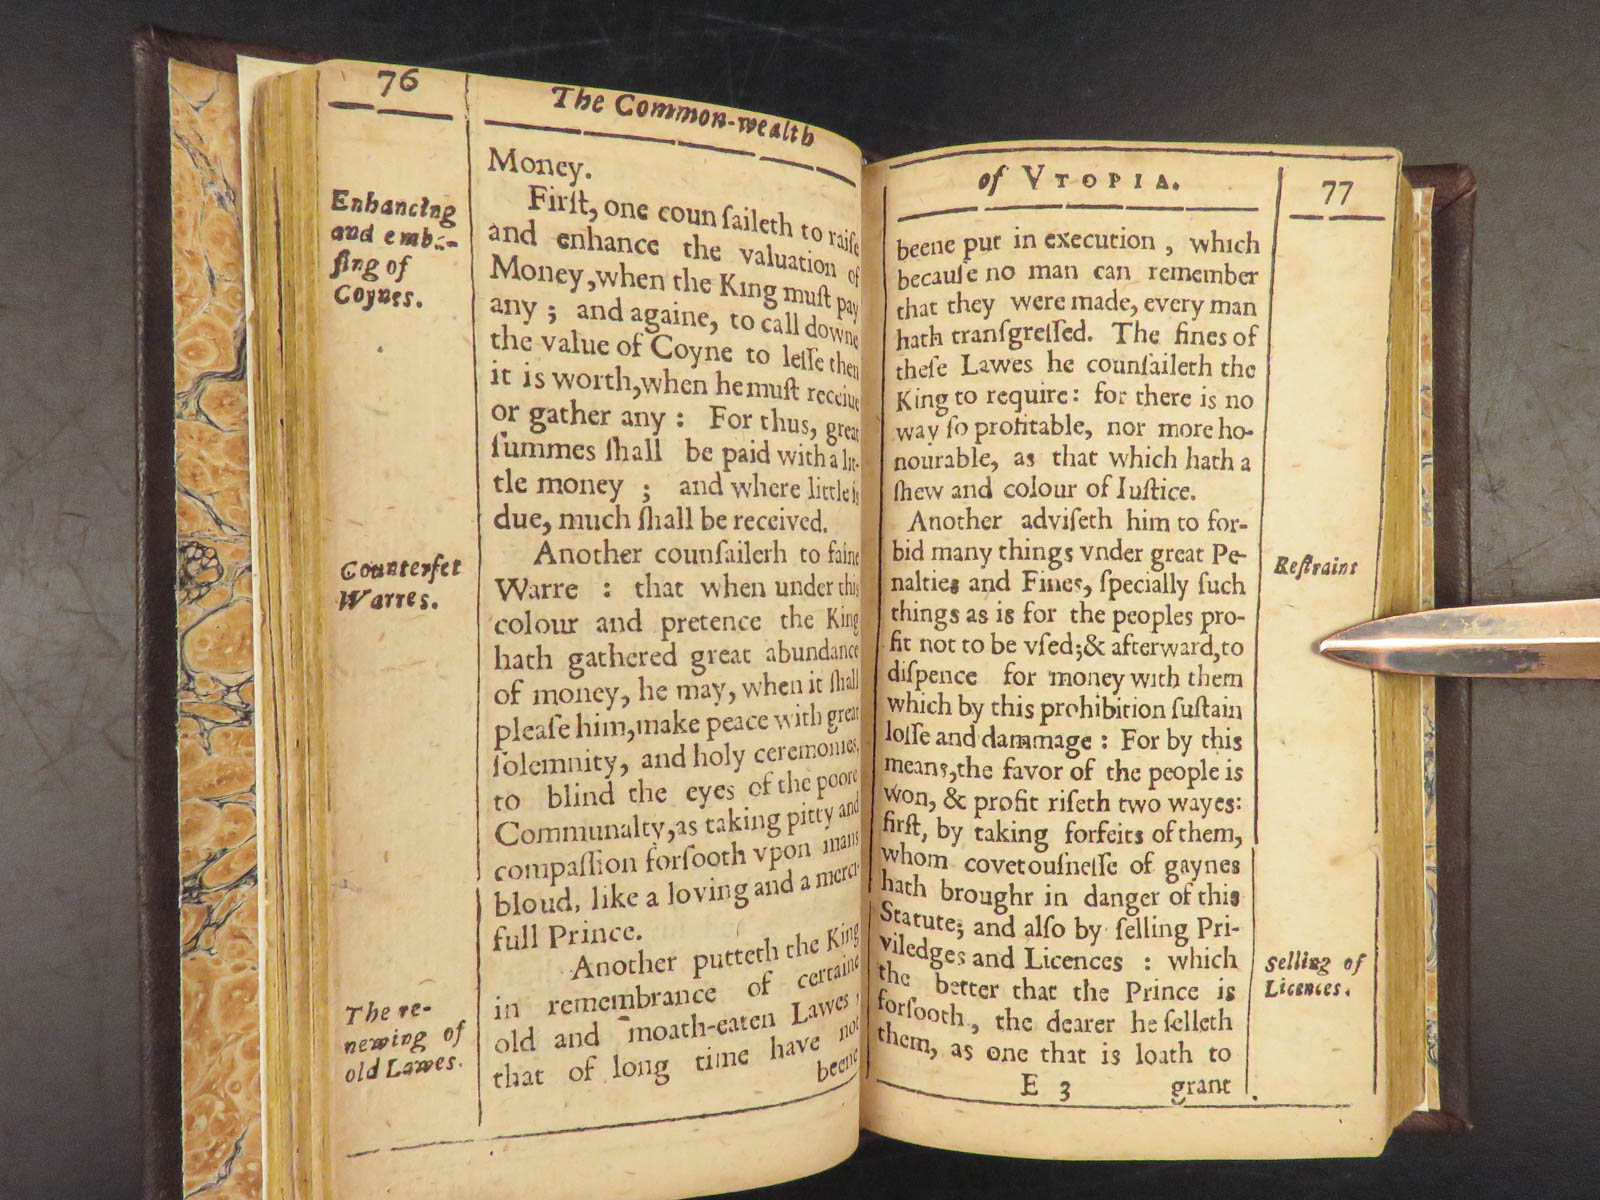 76
The Common-wealth
Enhancing
and emba-
ſing of
Coynes.
Money.
Firſt, one counſaileth to raiſe
and enhance the valuation of
Money, when the King muſt pay
any ; and againe, to call downe
the value of Coyne to leſſe then
it is worth, when he muſt receiue
or gather any : For thus, great
ſummes ſhall be paid with a lit-
tle money ; and where little is
due, much ſhall be received.
Counterfet
Warres.
Another counſaileth to faine
Warre : that when under this
colour and pretence the King
hath gathered great abundance
of money, he may, when it ſhall
pleaſe him, make peace with great
ſolemnity, and holy ceremonies,
to blind the eyes of the poore
Communalty, as taking pitty and
compaſſion forſooth vpon mans
bloud, like a loving and a merci-
full Prince.
The re-
newing of
old Lawes.
Another putteth the King
in remembrance of certaine
old and moath-eaten Lawes,
that of long time have not
beene
of VTOPIA.
77
beene put in execution, which
becauſe no man can remember
that they were made, every man
hath tranſgreſſed. The fines of
theſe Lawes he counſaileth the
King to require: for there is no
way ſo profitable, nor more ho-
nourable, as that which hath a
ſhew and colour of Iuſtice.
Another adviſeth him to for-
bid many things vnder great Pe-
nalties and Fines, ſpecially ſuch
things as is for the peoples pro-
fit not to be vſed; & afterward, to
diſpence for money with them
which by this prohibition ſuſtain
loſſe and dammage : For by this
means, the favor of the people is
won, & profit riſeth two wayes:
firſt, by taking forfeits of them,
whom covetouſneſſe of gaynes
hath brought in danger of this
Statute; and alſo by ſelling Pri-
viledges and Licences : which
the better that the Prince is
forſooth, the dearer he ſelleth
them, as one that is loath to
Reſtraint
Selling of
Licences.
E 3
grant